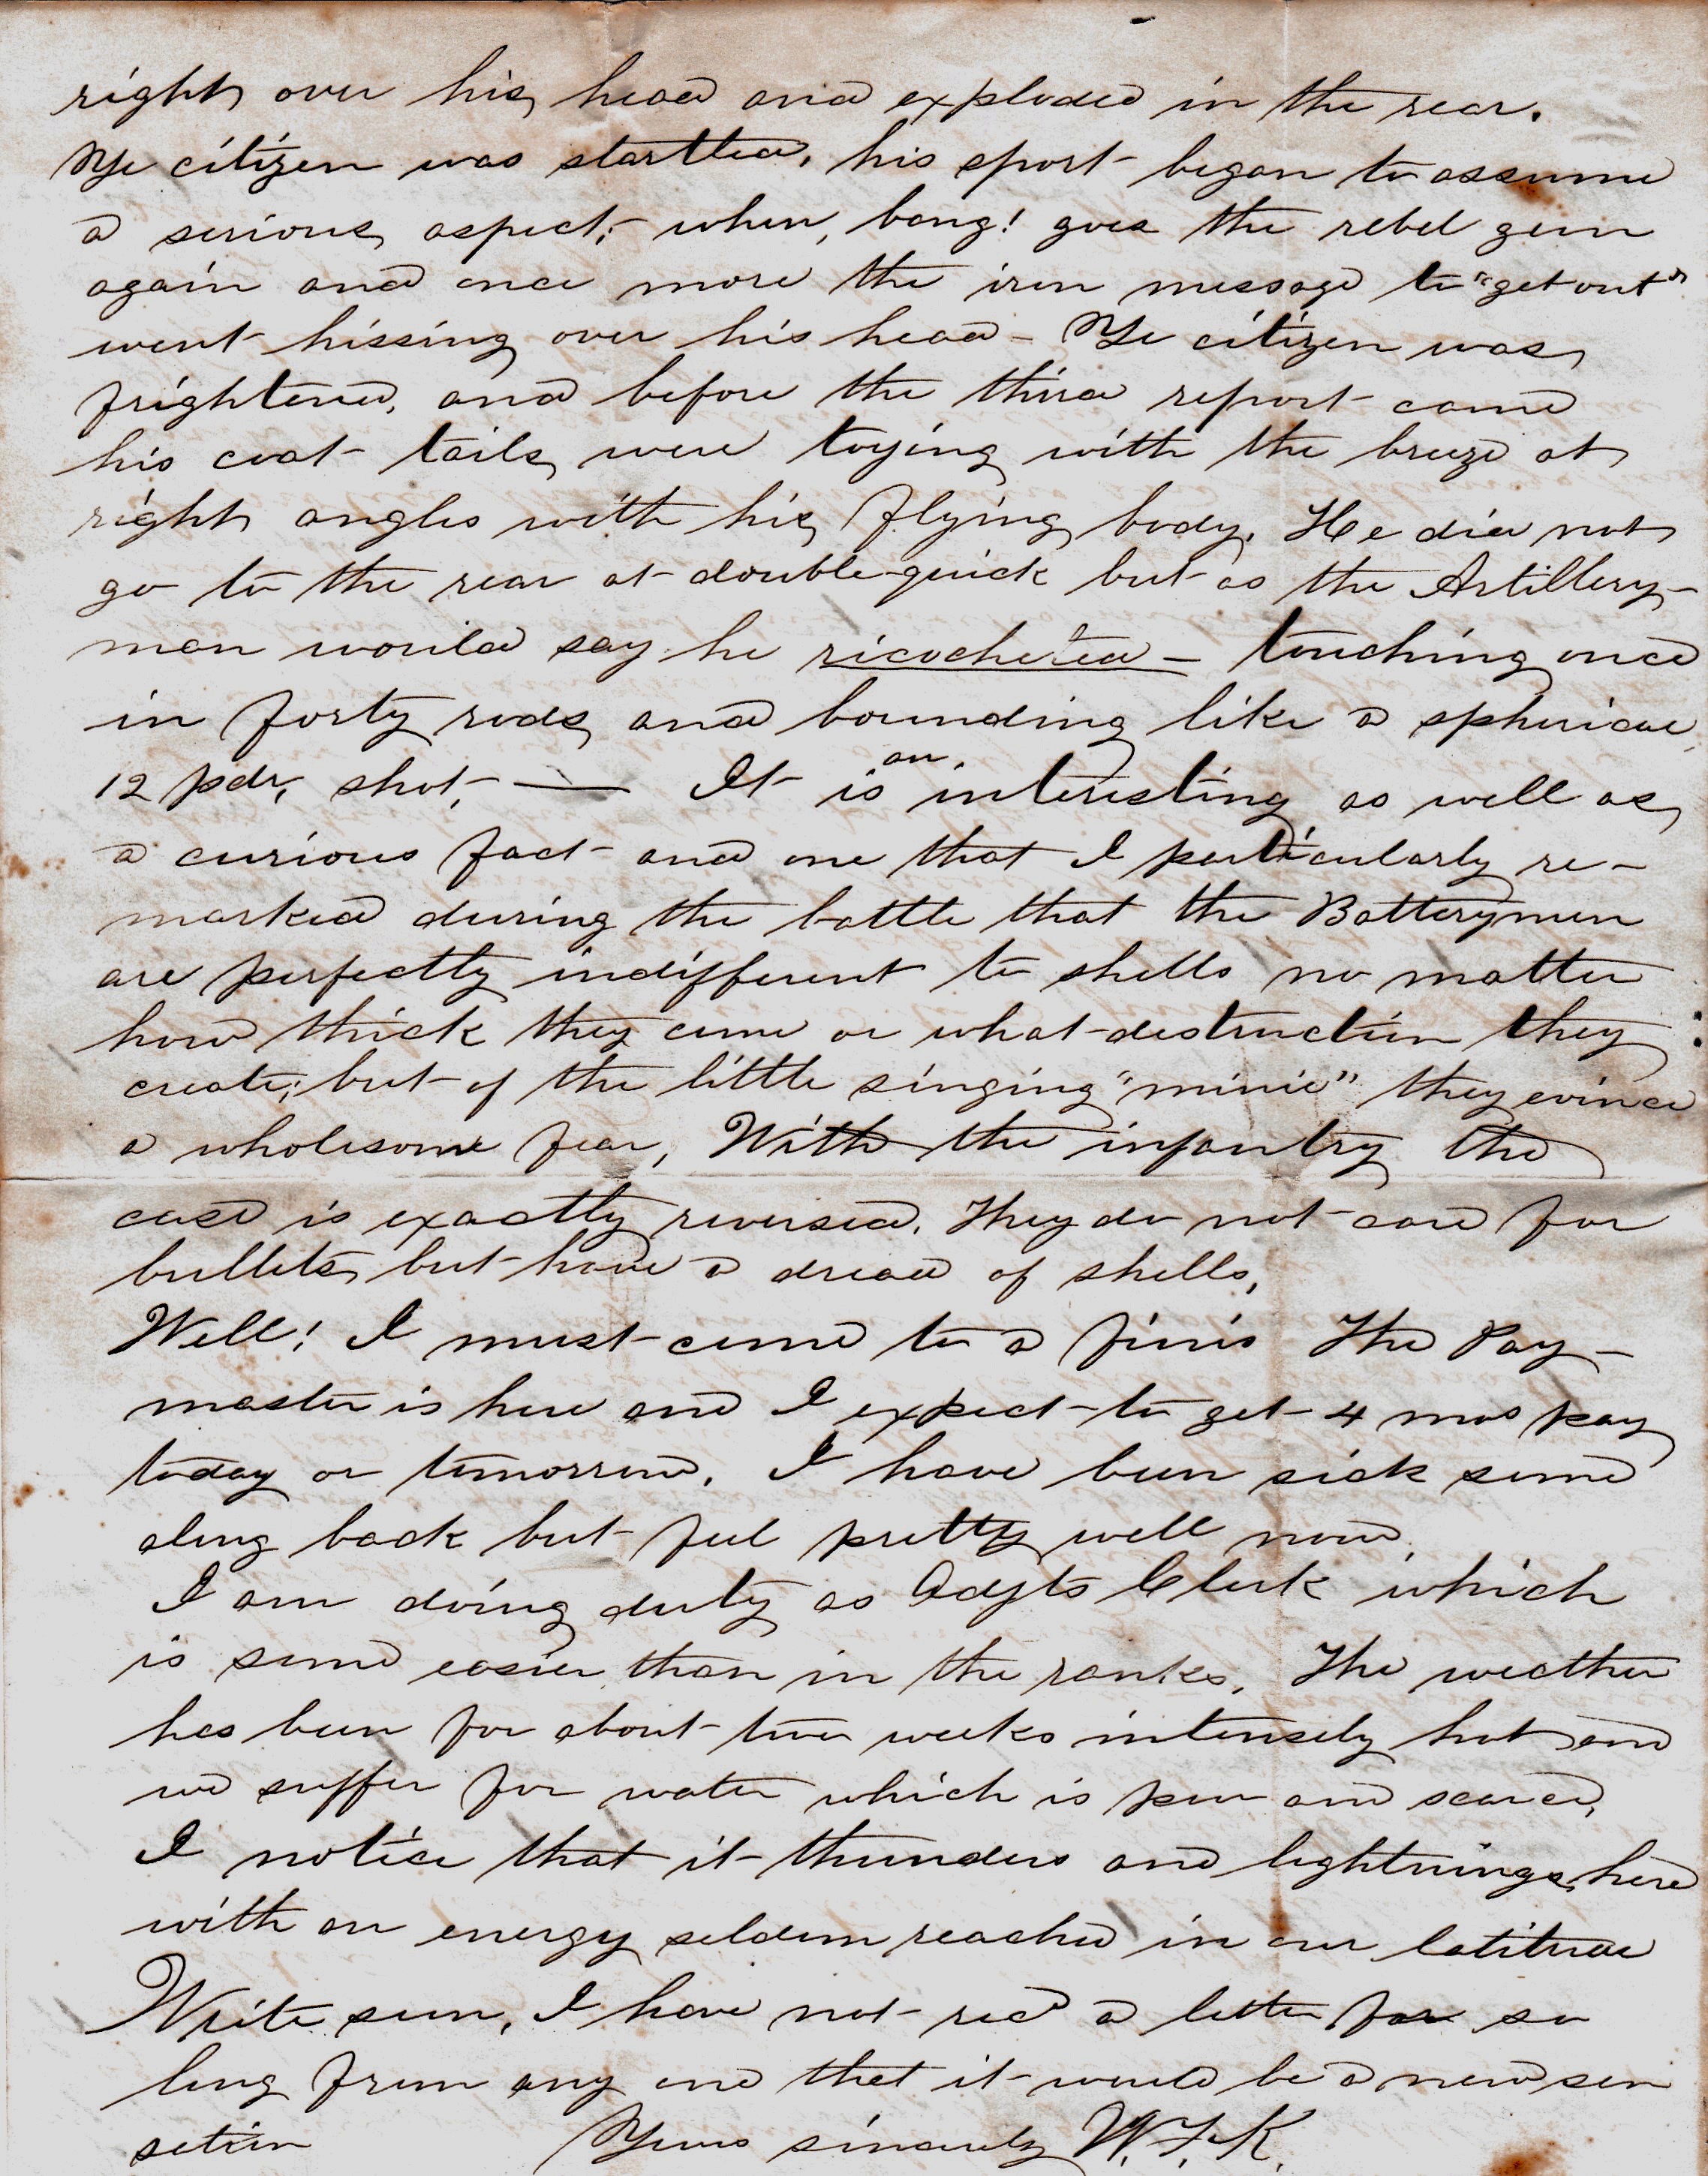 right over his head and exploded in the rear.
Ye citizen was startled, his sport began to assume
a serious aspect; when, bang! goes the rebel gun
again and once more the iron message to "get out"
went hissing over his head – Ye citizen was
frightened, and before the third report came
his coat-tails were toying with the breeze at
right angles with his flying body. He did not
go to the rear at double-quick but as the Artillery-
man would say he ricocheted – touching once
in forty rods and bounding like a spherical
12 pdr, shot, — It is an interesting as well as
a curious fact and one that I particularly re-
marked during the battle that the Batterymen
are perfectly indifferent to shells no matter
how thick they come or what destruction they
create; but of the little singing "minie" they evince
a wholesome fear, With the infantry the
case is exactly reversed. They do not care for
bullets but have a dread of shells,
Well! I must come to a finis The Pay-
master is here and I expect to get 4 mos pay
today or tomorrow. I have been sick some
along back but feel pretty well now.
I am doing duty as Adjts Clerk which
is some easier than in the ranks. The weather
has been for about two weeks intensely hot and
we suffer for water which is poor and scarce,
I notice that it thunders and lightnings here
with an energy seldom reached in our latitude
Write soon, I have not recd a letter for so
long from any one that it would be a new sen
sation Yours sincerely W.F.K.